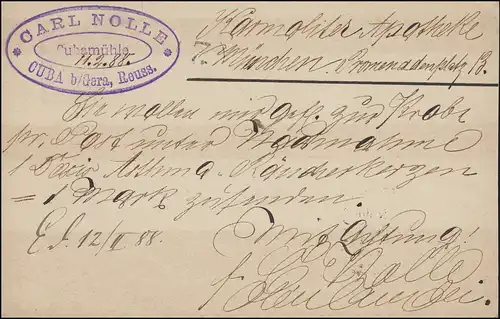 CARL NOLLE
Cubamühle
11.2.88.
CUBA b/Gera, Reuss.
Karmeliter Apotheke
München. Promenadenplatz 13.
Sie wollen mir gefl. zur Probe
pr. Post unter Nachnahme
1 Asthma-Räucherkerzen
= 1 Mark zusenden.
12/II 88.
Mit Achtung!
C. Nolle